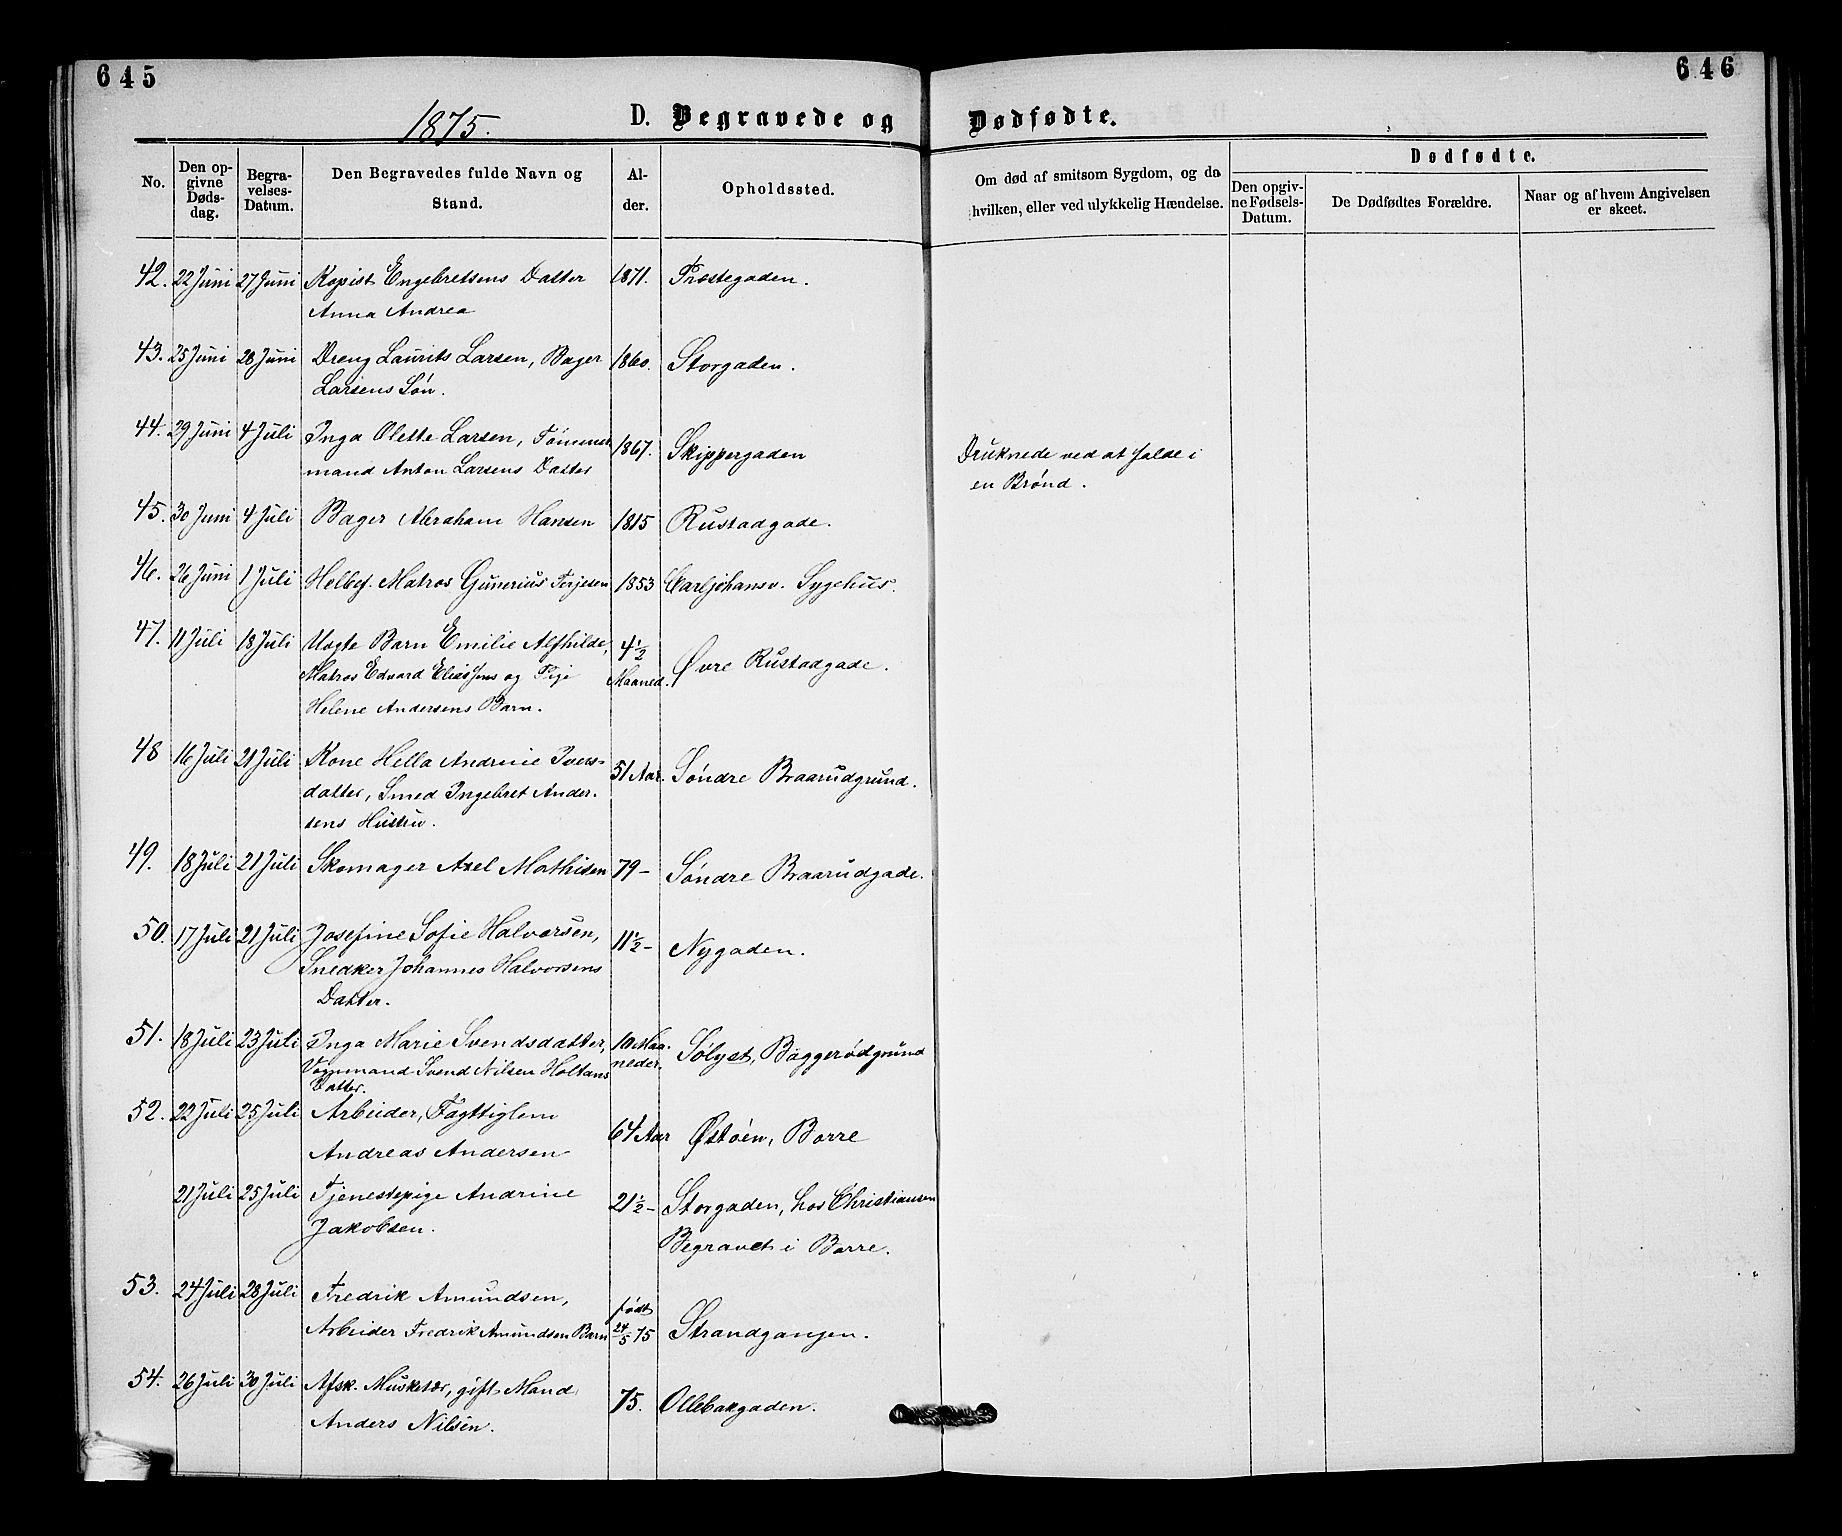 645
646
1875.
D. Begravede og Dødfødte.
No.
Den opgivne Dødsdag.
Begravelses-Datum.
Den Begravedes fulde Navn og Stand.
Alder.
Opholdssted.
Om død af smitsom Sygdom, og da hvilken, eller ved ulykkelig Hændelse.
Dødfødte.
Den opgivne Fødsels-Datum.
De Dødfødtes Forældre.
Naar og af hvem Angivelsen er skeet.
42. 22 Juni 27 Juni Kopist Engebretsens Datter 1871. Præstegaden.
Anna Andrea
43. 25 Juni 28 Juni Dreng Laurits Larsen, Bager 1860. Storgaden.
Larsens Søn.
44. 29 Juni 4 Juli Inga Olette Larsen, Tømmer 1867. Skippergaden
mand Anton Larsens Datter
Druknede ved at falde i
en Brønd.
45. 30 Juni 4 Juli Bager Abraham Hansen 1815 Rustadgade.
46. 26 Juni 1 Juli Helbef. Matros Gunerius Terjesen 1853 Carljohansv. Sygehus.
47. 11 Juli 18 Juli Uægte Barn Emilie Alfhilde, 4½ Maaned. Øvre Rustadgade.
Matros Edvard Eliassens og Pige
Helene Andersens Barn.
48 16 Juli 21 Juli Kone Hella Andrine Ivers- 51 Aar. Søndre Braarudgrund.
datter, Smed Ingebret Ander-
sens Hustru.
49. 18 Juli 21 Juli Skomager Axel Mathisen 79 – Søndre Braarudgade.
50. 17 Juli 21 Juli Josefine Sofie Halvorsen, 11½ – Nygaden.
Snedker Johannes Halvorsens
Datter.
51. 18 Juli 23 Juli Inga Marie Svendsdatter, 10 Maaneder. Sølyst, Baggerødgrund
Vognmand Svend Nilsen Holtans
Datter.
52. 22 Juli 25 Juli Arbeider, Fagttiglem 64 Aar Østøen, Borre
Andreas Andersen
21 Juli 25 Juli Tjenestepige Andrine 21½ – Storgaden, hos Christiansen
Jakobsen. Begravet i Borre.
53. 24 Juli 28 Juli Fredrik Amundsen, født 24/5 75 Strandgangen.
Arbeider Fredrik Amundsen Barn
54. 26 Juli 30 Juli Afsk. Musketær, gift Mand 75. Ollebakgaden.
Anders Nilsen.